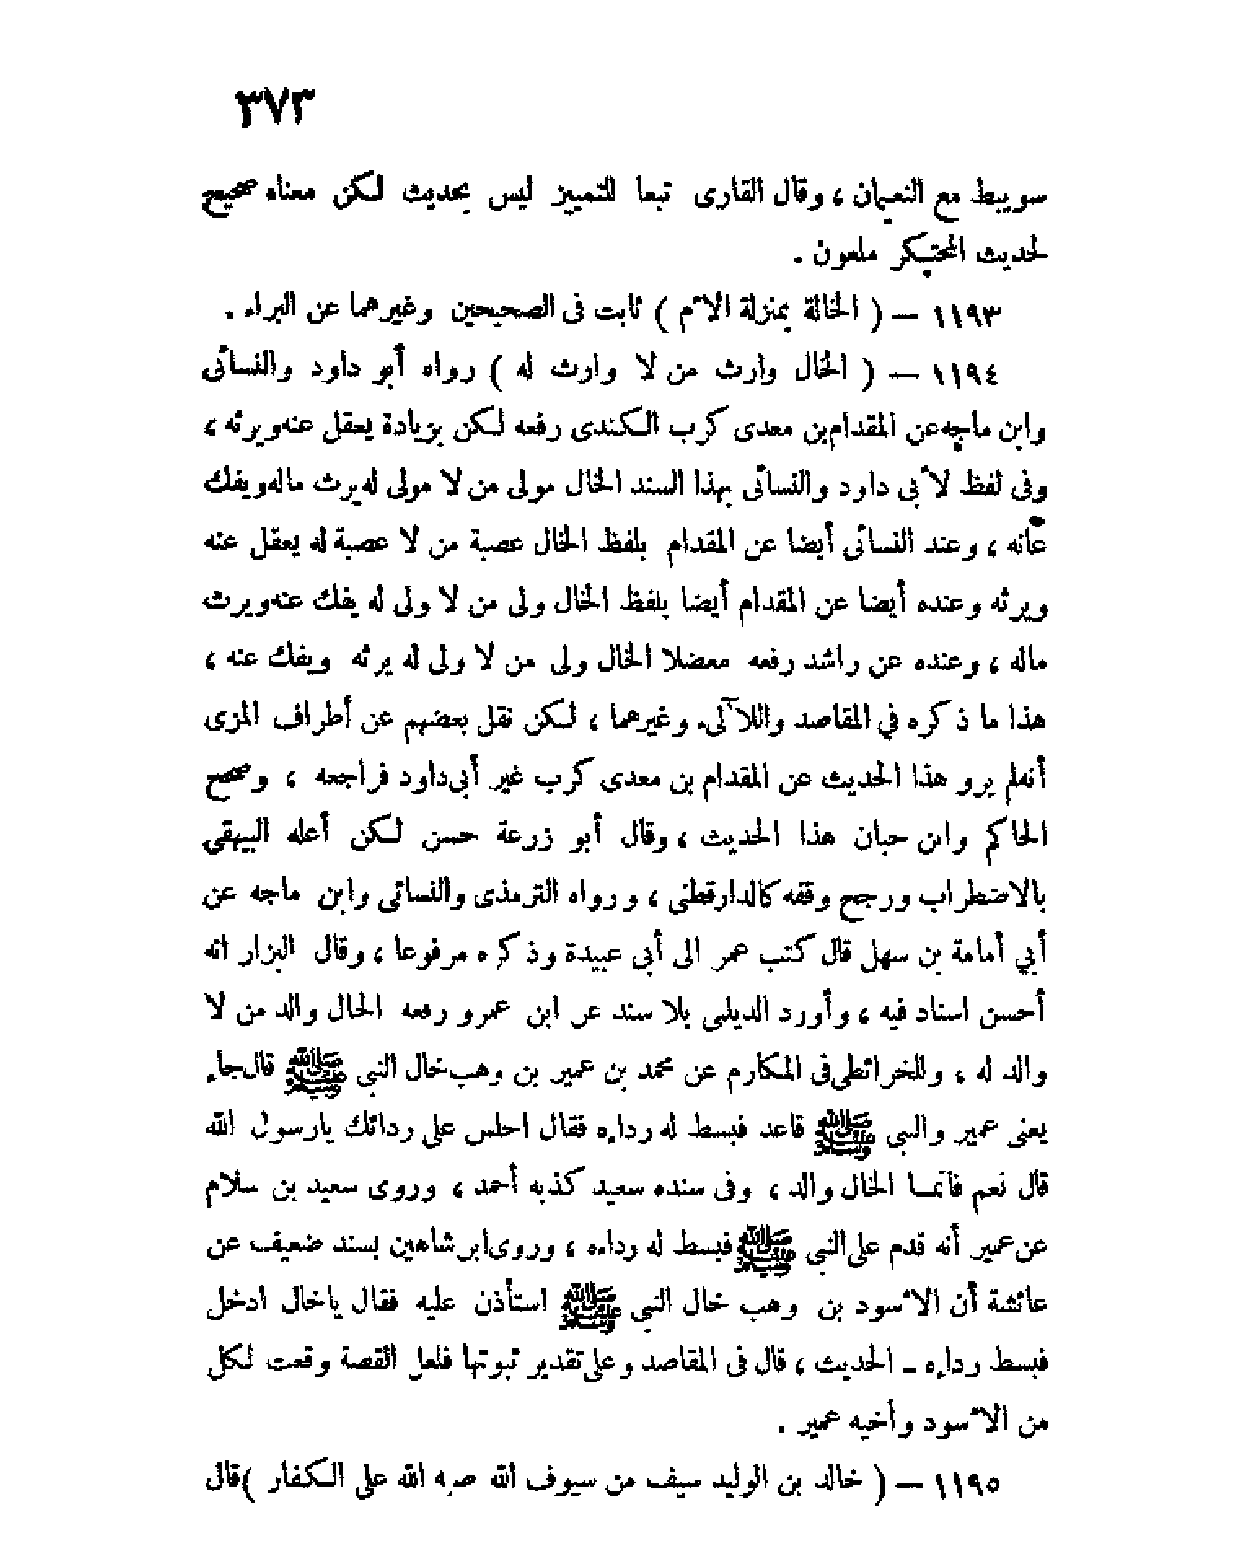 ٣٧٣
سويبط مع النعيمان ، وقال القارى تبعا للتمييز ليس بحديث لكن معناه صحيح
لحديث المحتكر ملعون .
١١٩٣ — ( الخالة بمنزلة الأم ) ثابت فى الصحيحين وغيرهما عن البراء .
١١٩٤ — ( الخال وارث من لا وارث له ) رواه أبو داود والنسائى
وابن ماجه عن المقدام بن معدى كرب الكندى رفعه لكن بزيادة يعقل عنه ويرثه ،
وفى لفظ لأبى داود والنسائى بهذا السند الخال مولى من لا مولى له يرث ماله ويفك
عانه ، وعند النسائى أيضا عن المقدام بلفظ الخال عصبة من لا عصبة له يعقل عنه
ويرثه وعنده أيضا عن المقدام أيضا بلفظ الخال ولى من لا ولى له يفك عنه ويرث
ماله ، وعنده عن راشد رفعه معضلا الخال ولى من لا ولى له يرثه ويفك عنه ،
هذا ما ذكره في المقاصد واللآلىء وغيرهما ، لكن نقل بعضهم عن أطراف المزى
أنه لم يرو هذا الحديث عن المقدام بن معدى كرب غير أبى داود فراجعه ، وصحح
الحاكم وابن حبان هذا الحديث ، وقال أبو زرعة حسن لكن أعله البيهقى
بالاضطراب ورجح وقفه كالدارقطنى ، ورواه الترمذى والنسائى وابن ماجه عن
أبي أمامة بن سهل قال كتب عمر الى أبى عبيدة وذكره مرفوعا ، وقال البزار انه
أحسن اسناد فيه ، وأورد الديلمى بلا سند عن ابن عمرو رفعه الخال والد من لا
والد له ، وللخرائطى فى المكارم عن محمد بن عمير بن وهب خال النبى ﷺ قال جاء
يعنى عمير والنبى ﷺ قاعد فبسط له رداءه فقال اجلس على ردائك يارسول الله
قال نعم فانما الخال والد ، وفى سنده سعيد كذبه أحمد ، وروى سعيد بن سلام
عن عمير أنه قدم على النبى ﷺ فبسط له رداءه ، وروى ابن شاهين بسند ضعيف عن
عائشة أن الأسود بن وهب خال النبى ﷺ استأذن عليه فقال ياخال ادخل
فبسط رداءه - الحديث ، قال فى المقاصد وعلى تقدير ثبوتها فلعل القصة وقعت لكل
من الأسود وأخيه عمير .
١١٩٥ — ( خالد بن الوليد سيف من سيوف الله صبه الله على الكفار ) قال